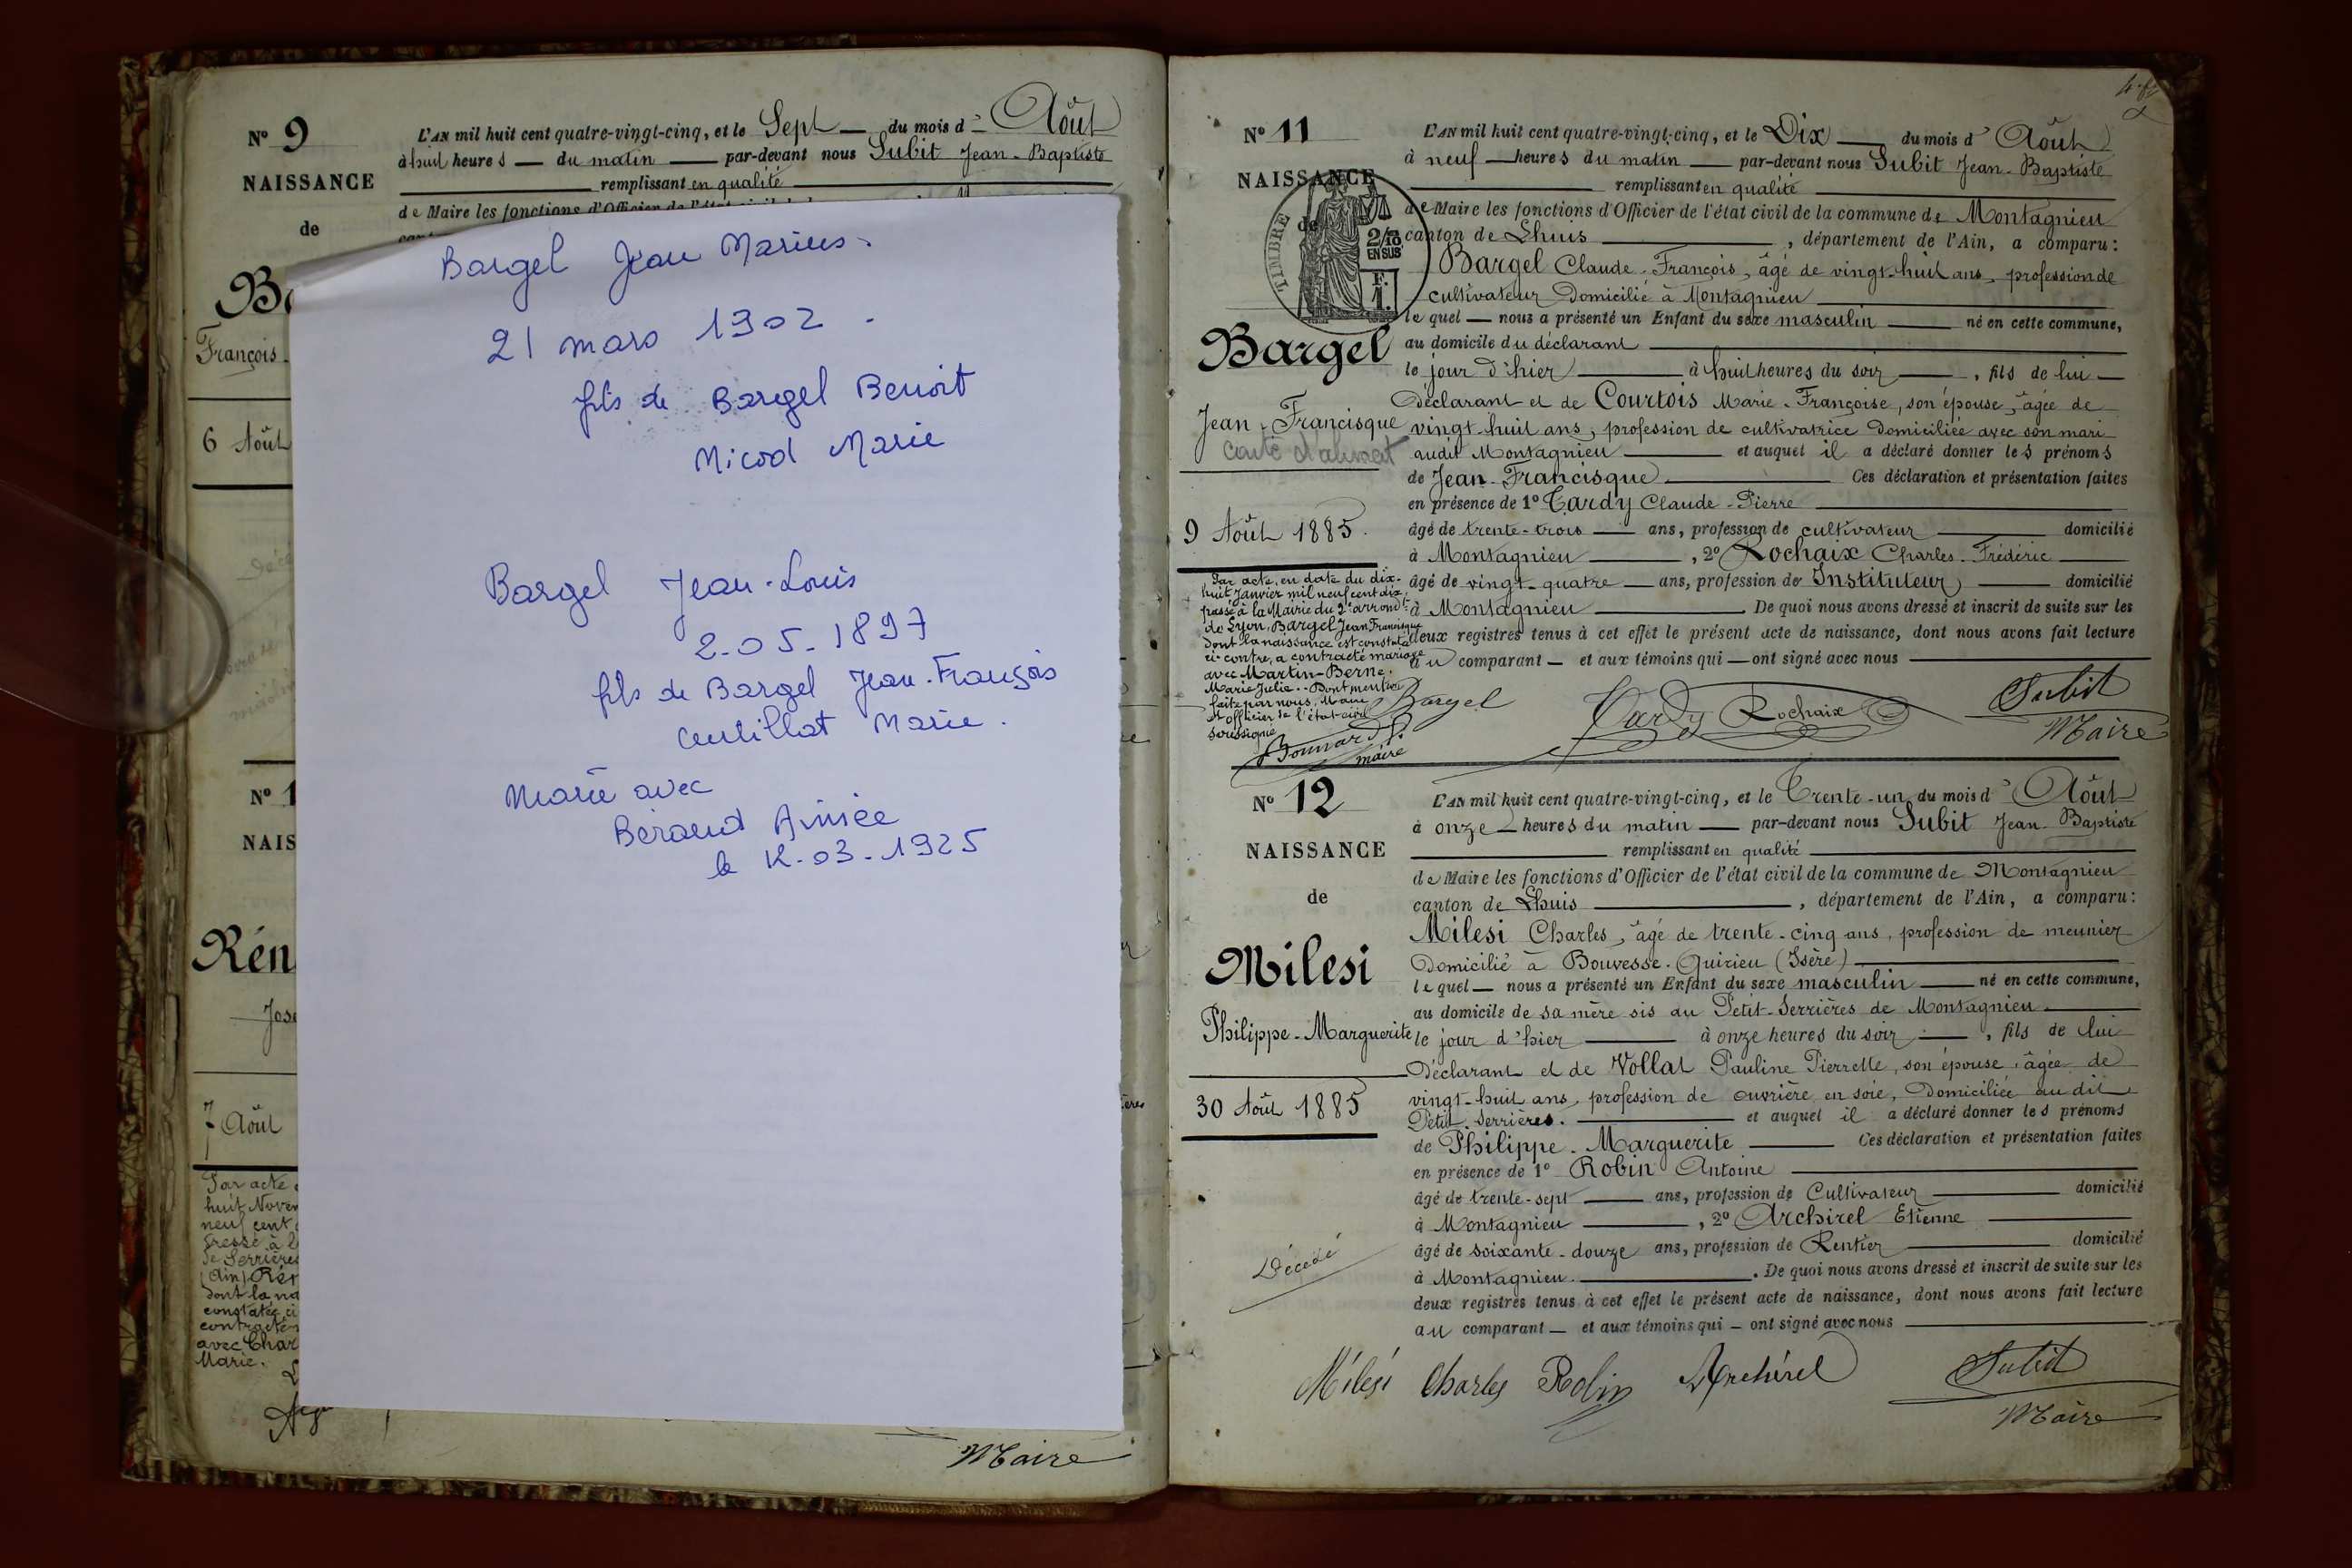 N° 9
L'AN mil huit cent quatre-vingt-cinq, et le Sept — du mois d'Août
à huit heures — du matin — par-devant nous Subit Jean-Baptiste
NAISSANCE
remplissant en qualité
de Maire les fonctions d'Officier de l'état civil de la
de
François
6 Août
N° 1
NAIS
Rén
José
7 Août
Par acte
huit Novem
neuf cent
dressé à l
de Serrières
(Ain) Rén
dont la na
constatée ci
contracté
avec Char
Marie.
Maire
Bargel Jean Marius.
21 mars 1902.
fils de Bargel Benoit
Nicod Marie
Bargel Jean-Louis
2-05-1897
fils de Bargel Jean-François
Marie.
Marié avec
Béraud Aimée
le 12-03-1925
N° 11
NAISSANCE
de
TIMBRE
2/10
EN SUS
Bargel
Jean-Francisque
9 Août 1885.
Par acte, en date du dix-
huit Janvier mil neuf cent dix,
passé à la Mairie du 2e arrondt
de Lyon, Bargel Jean Francisque
dont la naissance est constatée
ci-contre, a contracté mariage
avec Martin-Berne,
Marie Julie. - Dont mention
faite par nous, Maire
et officier de l'état-civil
soussigné
Bonnard
maire
L'AN mil huit cent quatre-vingt-cinq, et le Dix — du mois d'Août
à neuf — heures du matin — par-devant nous Subit Jean-Baptiste
remplissant en qualité
de Maire les fonctions d'Officier de l'état civil de la commune de Montagnieu
canton de Lhuis —, département de l'Ain, a comparu:
Bargel Claude-François, âgé de vingt-huit ans, profession de
cultivateur domicilié à Montagnieu
lequel — nous a présenté un Enfant du sexe masculin — né en cette commune,
au domicile du déclarant
le jour d'hier — à huit heures du soir —, fils de lui —
Déclarant et de Courtois Marie-Françoise, son épouse, âgée de
vingt-huit ans, profession de cultivatrice domiciliée avec son mari
audit Montagnieu — et auquel il a déclaré donner les prénoms
de Jean-Francisque — Ces déclaration et présentation faites
en présence de 1° Tardy Claude-Pierre
âgé de trente-trois — ans, profession de cultivateur — domicilié
à Montagnieu —, 2° Rochaix Charles-Frédéric
âgé de vingt-quatre — ans, profession de Instituteur — domicilié
à Montagnieu — De quoi nous avons dressé et inscrit de suite sur les
deux registres tenus à cet effet le présent acte de naissance, dont nous avons fait lecture
au comparant — et aux témoins qui — ont signé avec nous
Bargel Tardy Rochaix Subit
Maire
N° 12
NAISSANCE
de
Milesi
Philippe-Marguerite
30 Août 1885
Décédé
L'AN mil huit cent quatre-vingt-cinq, et le Trente-un du mois d'Août
à onze — heures du matin — par-devant nous Subit Jean-Baptiste
remplissant en qualité
de Maire les fonctions d'Officier de l'état civil de la commune de Montagnieu
canton de Lhuis —, département de l'Ain, a comparu:
Milesi Charles, âgé de trente-cinq ans, profession de meunier
Domicilié à Bouvesse-Quirieu (Isère)
lequel — nous a présenté un Enfant du sexe masculin — né en cette commune,
au domicile de sa mère sis au Petit-Serrières de Montagnieu
le jour d'hier — à onze heures du soir —, fils de lui
Déclarant et de Vollat Pauline Pierrette, son épouse, âgée de
vingt-huit ans, profession de ouvrière en soie, Domiciliée au dit
Petit Serrières. — et auquel il a déclaré donner les prénoms
de Philippe-Marguerite — Ces déclaration et présentation faites
en présence de 1° Robin Antoine
âgé de trente-sept — ans, profession de Cultivateur — domicilié
à Montagnieu —, 2° Archirel Etienne
âgé de soixante-douze ans, profession de Rentier — domicilié
à Montagnieu. — De quoi nous avons dressé et inscrit de suite sur les
deux registres tenus à cet effet le présent acte de naissance, dont nous avons fait lecture
au comparant — et aux témoins qui — ont signé avec nous
Milési Charles Robin Archirel Subit
Maire